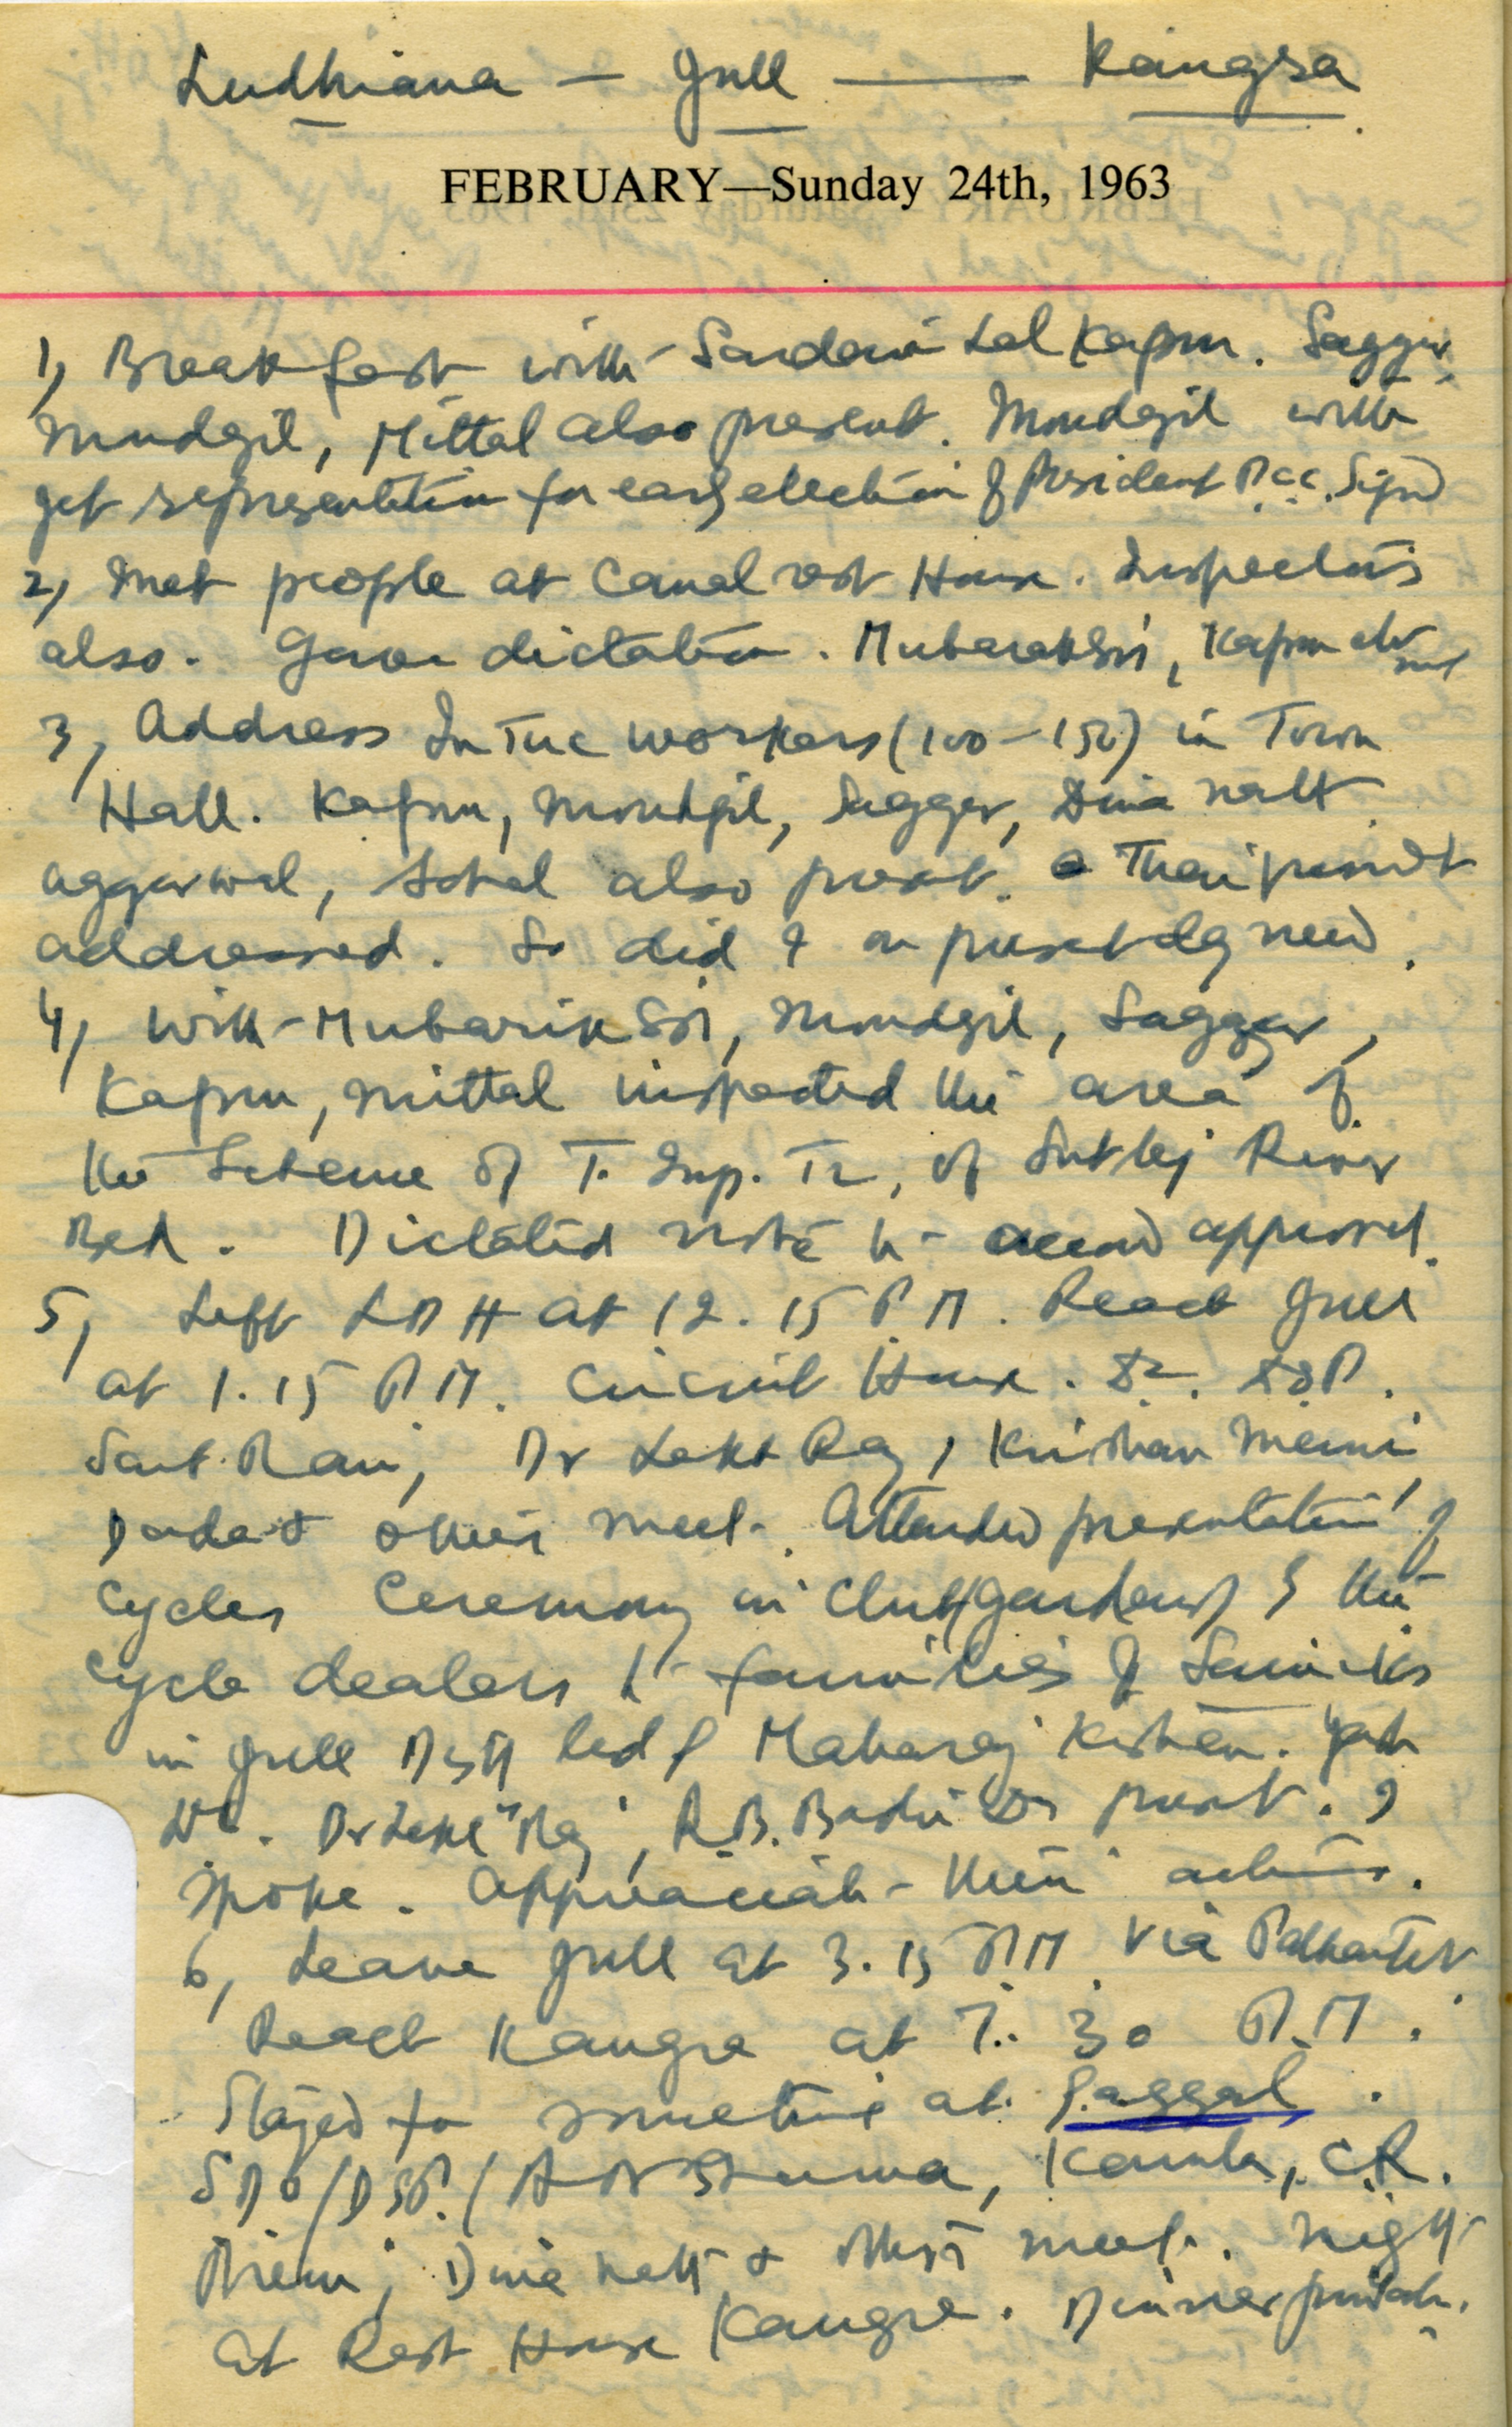 Ludhiana — Jull — Kangra
FEBRUARY—Sunday 24th, 1963
1, Breakfast with Sardari Lal Kapur. Saggar,
Mudgil, Mittal also present. Moudgil will
get representation for early election of President P.C.C. signed
2, Met people at Canal rest House. Inspectors
also. Gave dictation. Mubarak Sri, Kapur also met
3, Address INTUC workers (100-150) in Town
Hall. Kapur, Moudgil, Saggar, Dina Nath
Aggarwal, also present. Their president
addressed. So did I on present day need.
4, With Mubarik Sri, Moudgil, Saggar,
Kapur, Mittal inspected the area of
the Scheme of T. Imp. Tr, of Sutlej River
Bed. Dictated note to accord approval.
5, Left LDH at 12.15 P.M. Reach Jull
at 1.15 P.M. Circuit House. DC. DSP.
Sant Ram, Dr Lekh Raj, Krishan
& others meet. Attended presentation of
cycles Ceremony in Club gardens by the
cycle dealers to families of Sainiks
in Jull Distt led by Maharaj Kishen. Yash
DC. Dr Lekh Raj, R.B. Badri Ds present. I
spoke. Appreciate their action.
6, Leave Jull at 3.15 P.M. via Pathankot
Reach Kangra at 7.30 P.M.
Stayed for sometime at Gaggal.
SDO/DSP/A N Sharma, Kamla, C.R.
Premi, Dina Nath & others meet. Night
at Rest House Kangra. Dinner private.